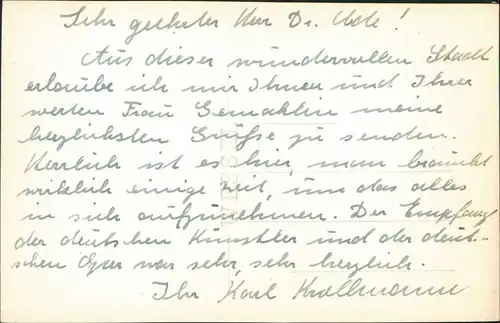 Sehr geehrter Herr Dr. !
Aus dieser wundervollen Stadt
erlaube ich mir Ihnen und Ihrer
werten Frau Gemahlin meine
herzlichsten Grüße zu senden.
Herrlich ist es hier, man braucht
wirklich einige Zeit, um das alles
in sich aufzunehmen. Der Empfang
der deutschen Künstler und der deut-
schen Oper war sehr, sehr herzlich.
Ihr Karl Krollmann